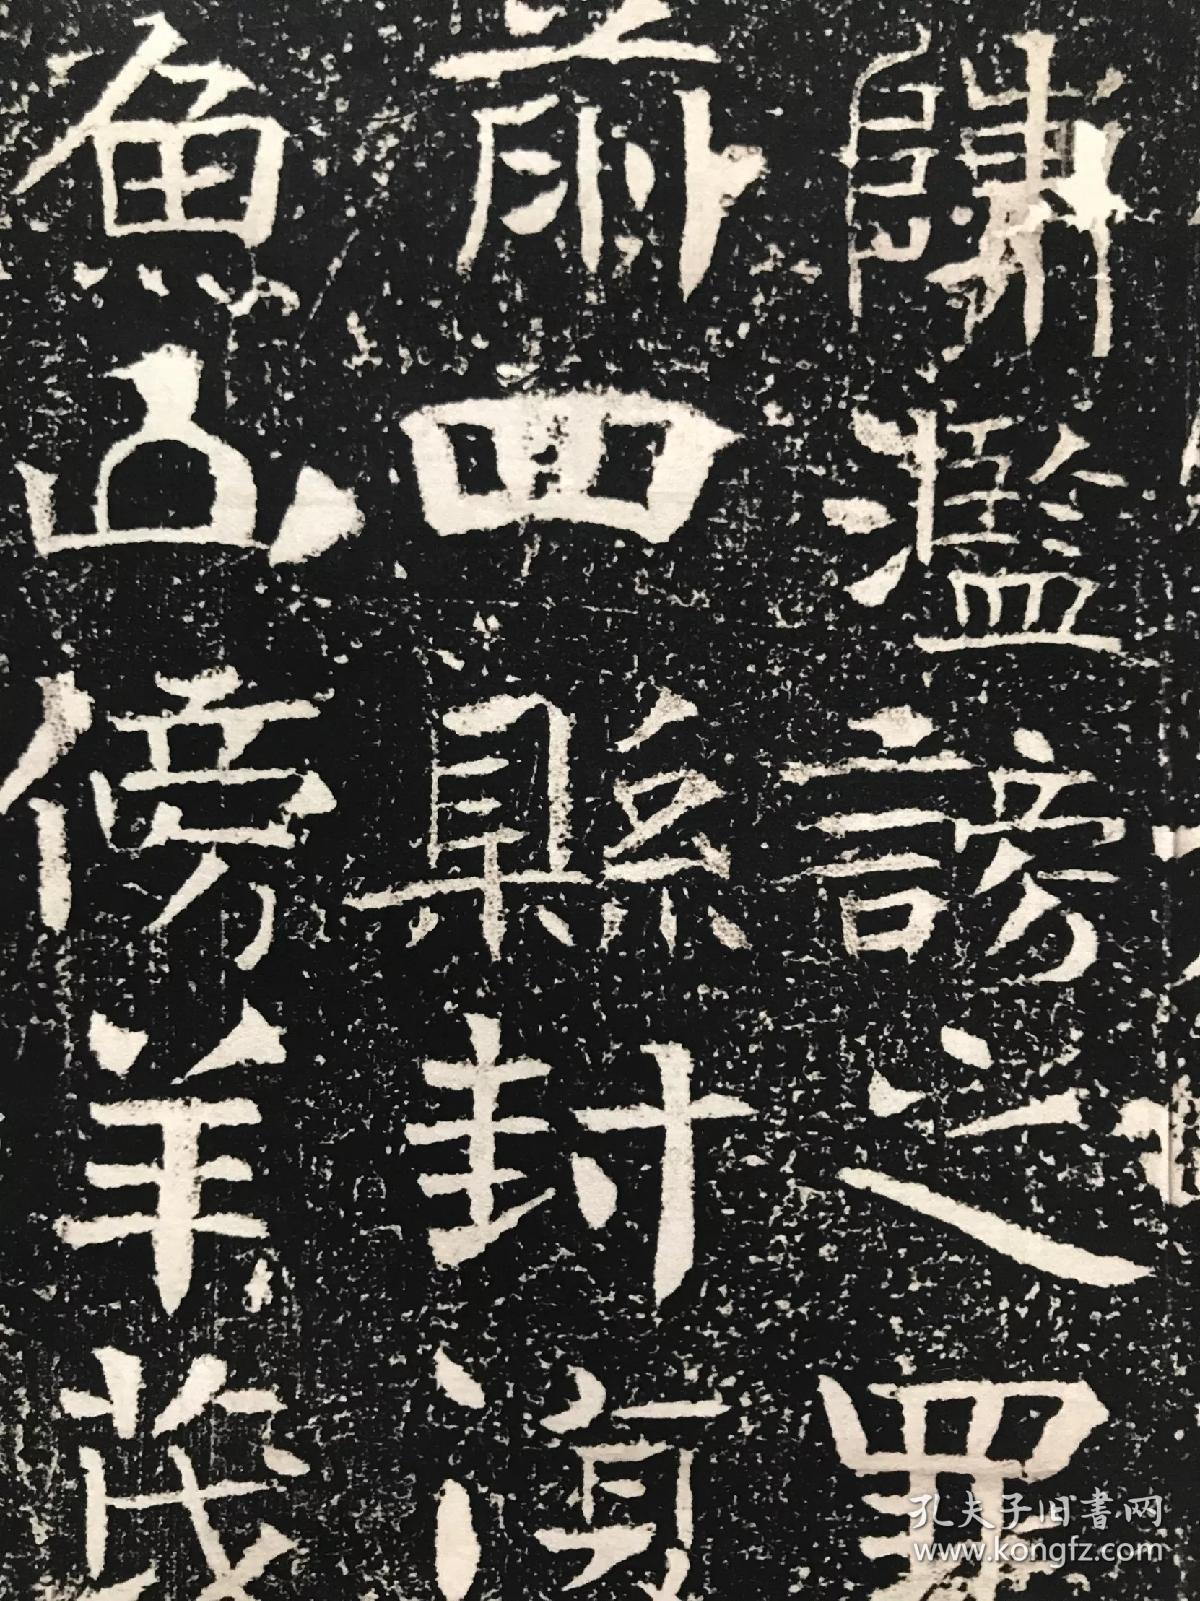 濫謗之罪
前四縣封
魚山傍羊茂
孔夫子旧書网
www.kongfz.com